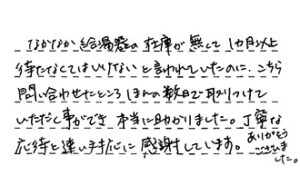 なかなか給湯器の在庫が無くて1カ月以上
待たなくてはいけないと言われていたのに、こちら
問い合わせたところほんの数日で取りつけて
いただく事ができ本当に助かりました。丁寧な
応待と速い対応に感謝しています。ありがとう
ございま
した。